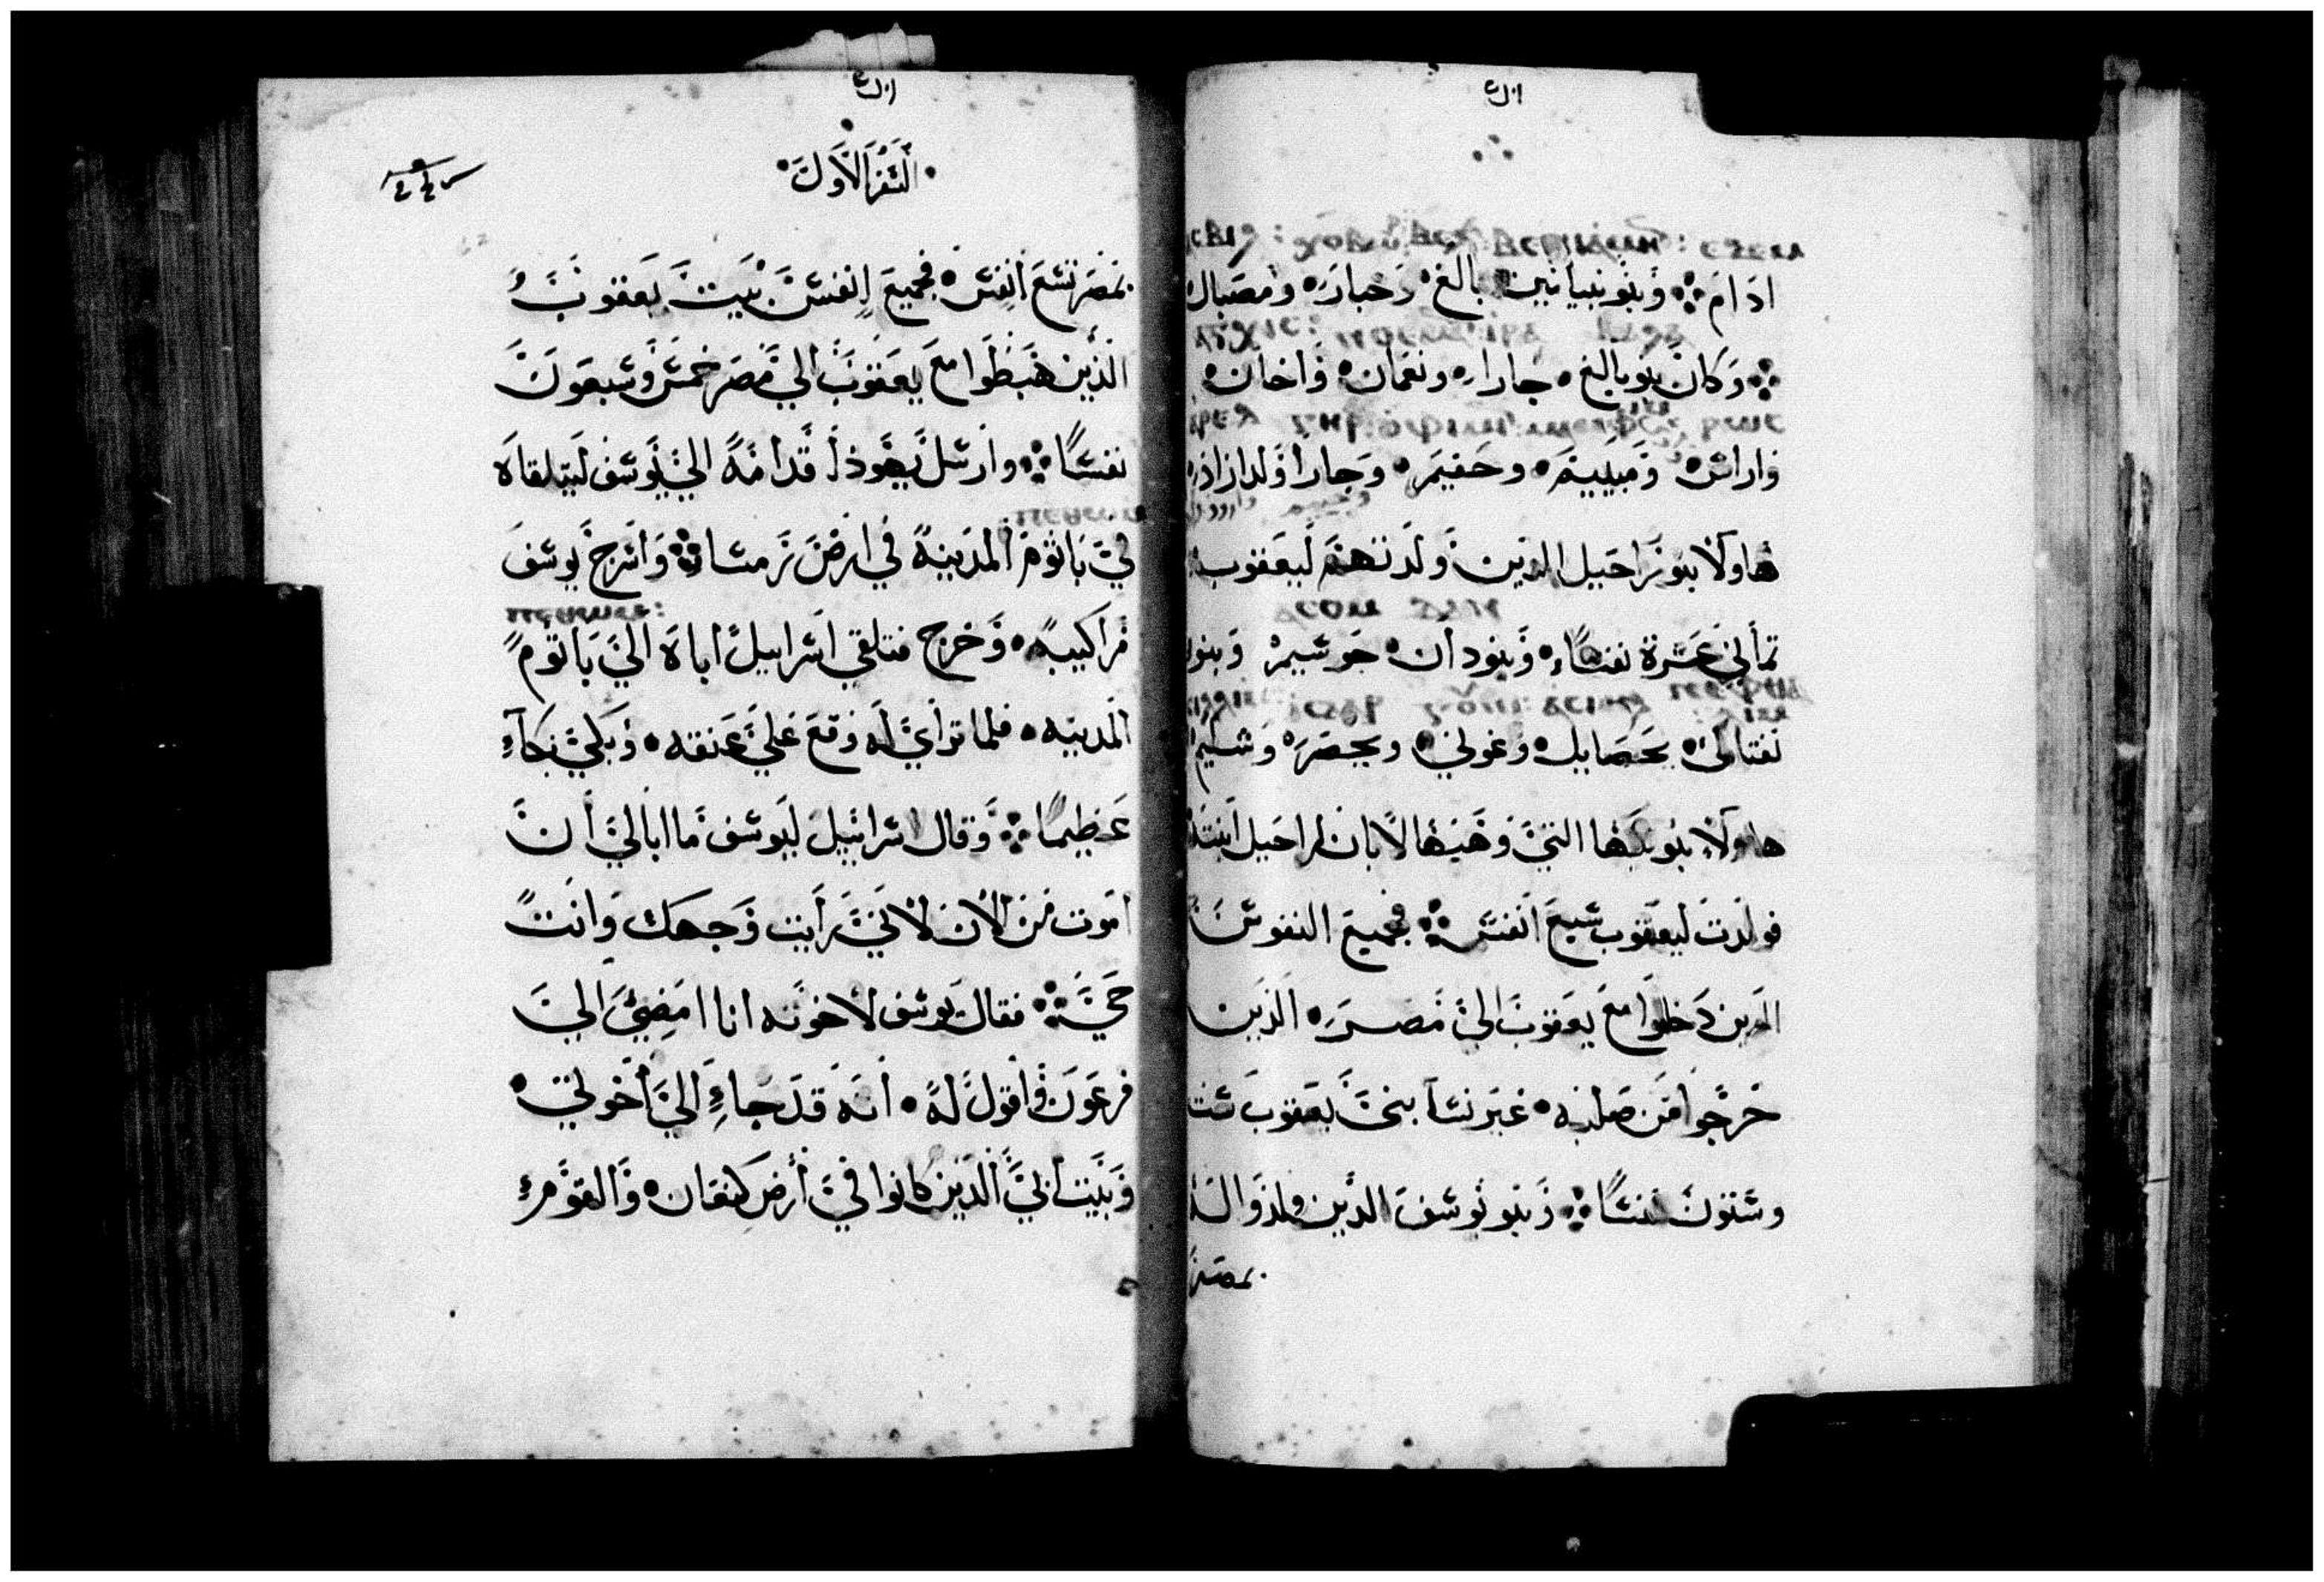 ادام وبنو بنيامين بالغ وخبار ومصبال
وكان بنو بالغ جارا ونعمان واخان
واراش ومبييم وحفيم وجارا ولد ازاد
هاولا بنو راحيل الذين ولدتهم ليعقوب
ثماني عشرة نفسًا وبنو دان حوشيم وبنو
نفتالى يحصايل وغوني ويحصر وشليم
هاولاء بنو بلها التي وهبها لابان لراحيل ابنته
فولدت ليعقوب سبع انفس فجميع النفوس
الذين دخلوا مع يعقوب الى مصر الذين
خرجوا من صلبه غير نسآ بني يعقوب ست
وستون نفسًا وبنو يوسف الذين ولدوا له
بمصر
السفر الاول
بمصر تسع انفس فجميع انفس بيت يعقوب
الذين هبطوا مع يعقوب الي مصر خمس وسبعون
نفسًا وارسل يهوذا قدامه الي يوسف ليتلقاه
الي باثوم المدينة في ارض رمسا واسرج يوسف
مراكبه وخرج فتلقي اسراييل اباه الي باثوم
المدينه فلما تراي له وقع علي عنقه وبكي بكآء
عظيمًا وقال اسراييل ليوسف ما ابالي أن
اموت من الان لانني رأيت وجهك وانت
حي فقال يوسف لاخوته انا امضي الي
فرعون واقول له انه قد جاء الي أخوتي
وبيت ابي الذين كانوا في أرض كنعان والقوم